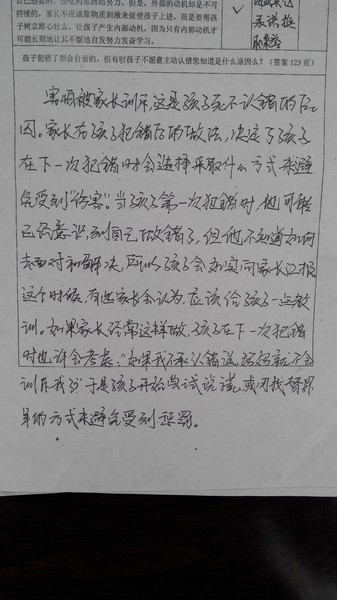 持续的，家长不应该靠物质刺激来促使孩子上进，而是要帮孩子树立雄心壮志，让孩子产生内部动机，因为只有内部动机才可能长期地让其不懈地自发努力发奋学习。
承诺 换
孩子犯错了都会自责的，但有时孩子不愿意主动认错您知道是什么原因么？（答案 123 页）
害怕被家长训斥，这是孩子死不认错的原
因。家长在孩子犯错后的做法，决定了孩子
在下一次犯错时会选择采取什么方式来避
免受到“伤害”。当孩子第一次犯错时，他可能
已经意识到自己做错了，但他不知道如何
去面对和解决，所以孩子会如实向家长汇报
这个时候，有些家长会认为，应该给孩子一点教
训。如果家长经常这样做，孩子在下一次犯错
时也许会考虑：“如果我不承认错误，妈妈就不会
训斥我”于是孩子开始尝试说谎，或用找替罪
羊的方式来避免受到惩罚。